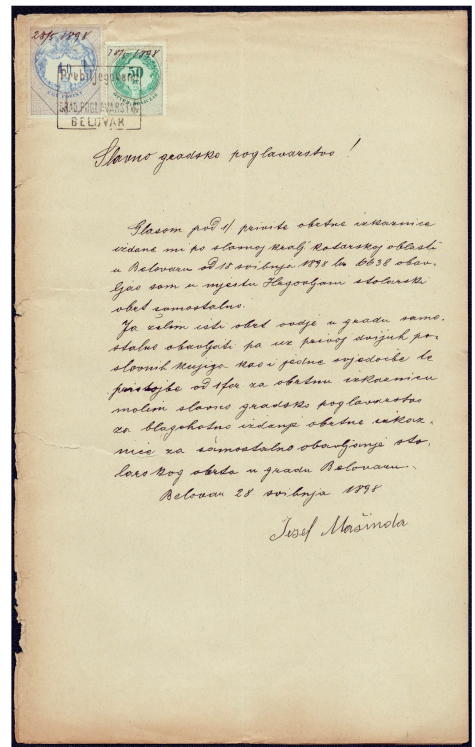 28/5 1898
28/5 1898
50
Prebilježovano
GRAD. POGLAVARSTVO
BELOVAR
Slavno gradsko poglavarstvo!
Glasom pod 1/ privite obrtne izkaznice
izdane mi po slavnoj kralj. kotarskoj oblasti
u Belovaru od 18 svibnja 1898 br 6638 obav-
ljao sam u mjestu stolarski
obrt samostalno.
Ja želim isti obrt ovdje u gradu samo-
stalno obavljati pa uz privoj dvijuh po-
slovnih knjiga kao i jedne svjedočbe te
pristojbe od 1 for za obrtnu izkaznicu
molim slavno gradsko poglavarstvo
za blagohotno izdanje obrtne izkaz-
nice za samostalno obavljanje sto-
larskog obrta u gradu Belovaru.
Belovar 28 svibnja 1898
Josef Mašinda